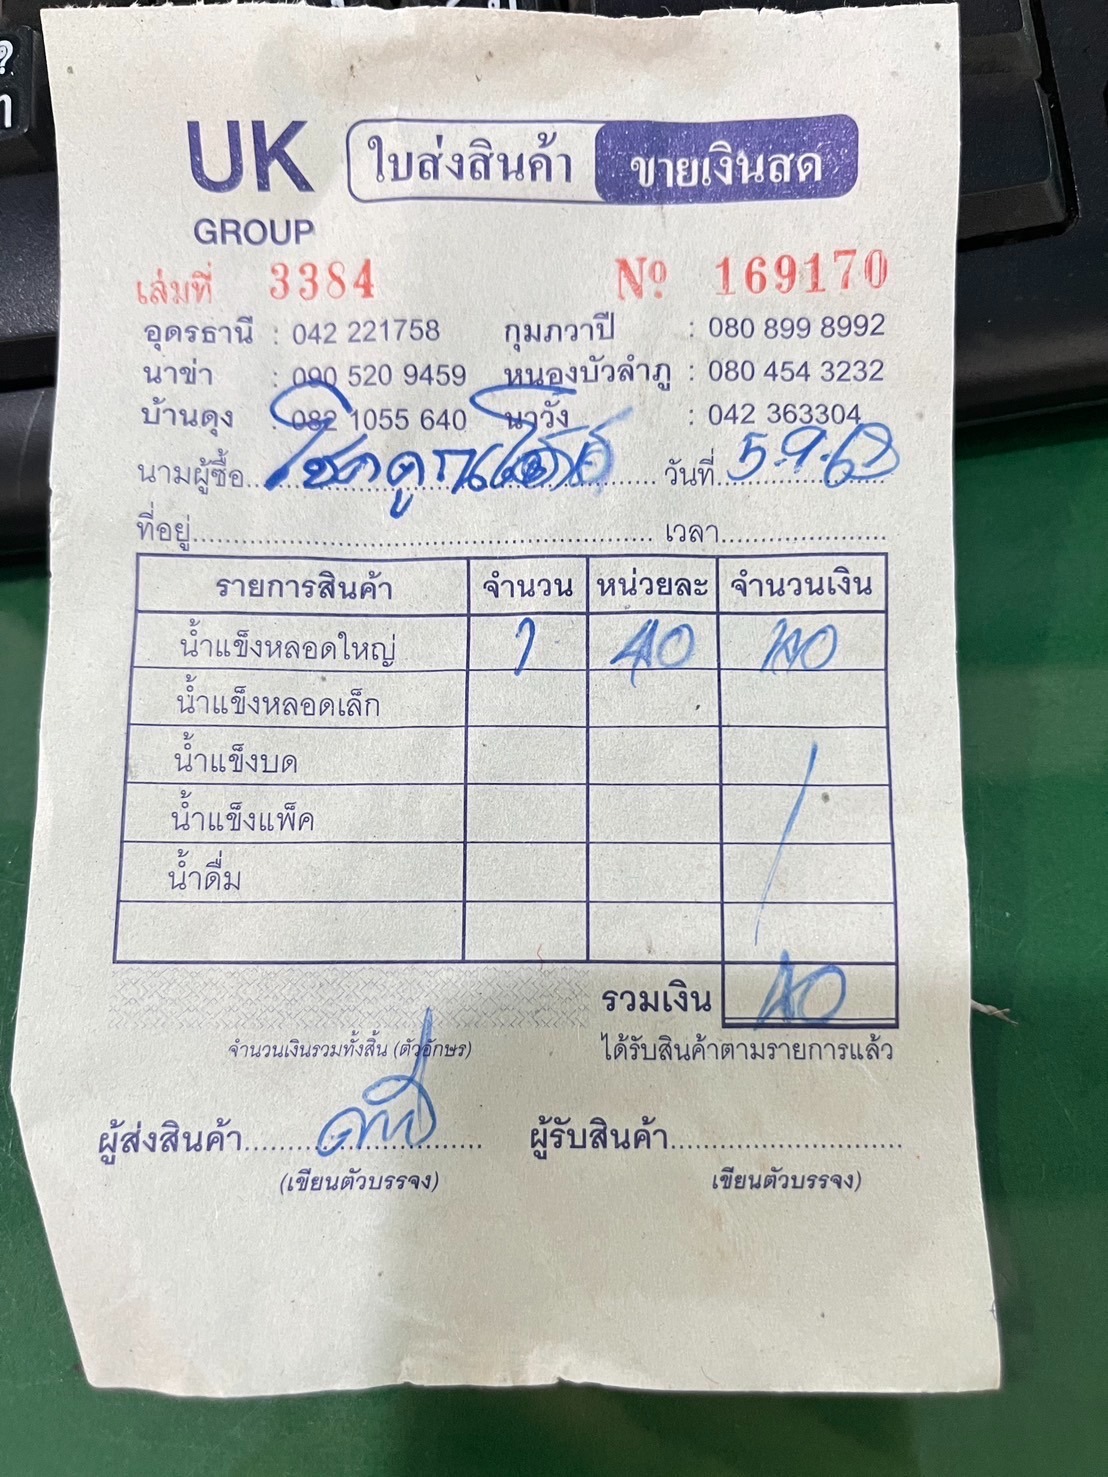 UK ใบส่งสินค้า ขายเงินสด
GROUP
เล่มที่ 3384 Nº 169170
อุดรธานี : 042 221758 กุมภวาปี : 080 899 8992
นาข่า : 090 520 9459 หนองบัวลำภู : 080 454 3232
บ้านดุง : 082 1055 640 นาวัง : 042 363304
นามผู้ซื้อ วันที่ 5-9-68
ที่อยู่ เวลา
รายการสินค้า จำนวน หน่วยละ จำนวนเงิน
น้ำแข็งหลอดใหญ่ 1 40 40
น้ำแข็งหลอดเล็ก
น้ำแข็งบด
น้ำแข็งแพ็ค
น้ำดื่ม
รวมเงิน 40
จำนวนเงินรวมทั้งสิ้น (ตัวอักษร) ได้รับสินค้าตามรายการแล้ว
ผู้ส่งสินค้า ผู้รับสินค้า
(เขียนตัวบรรจง) เขียนตัวบรรจง)